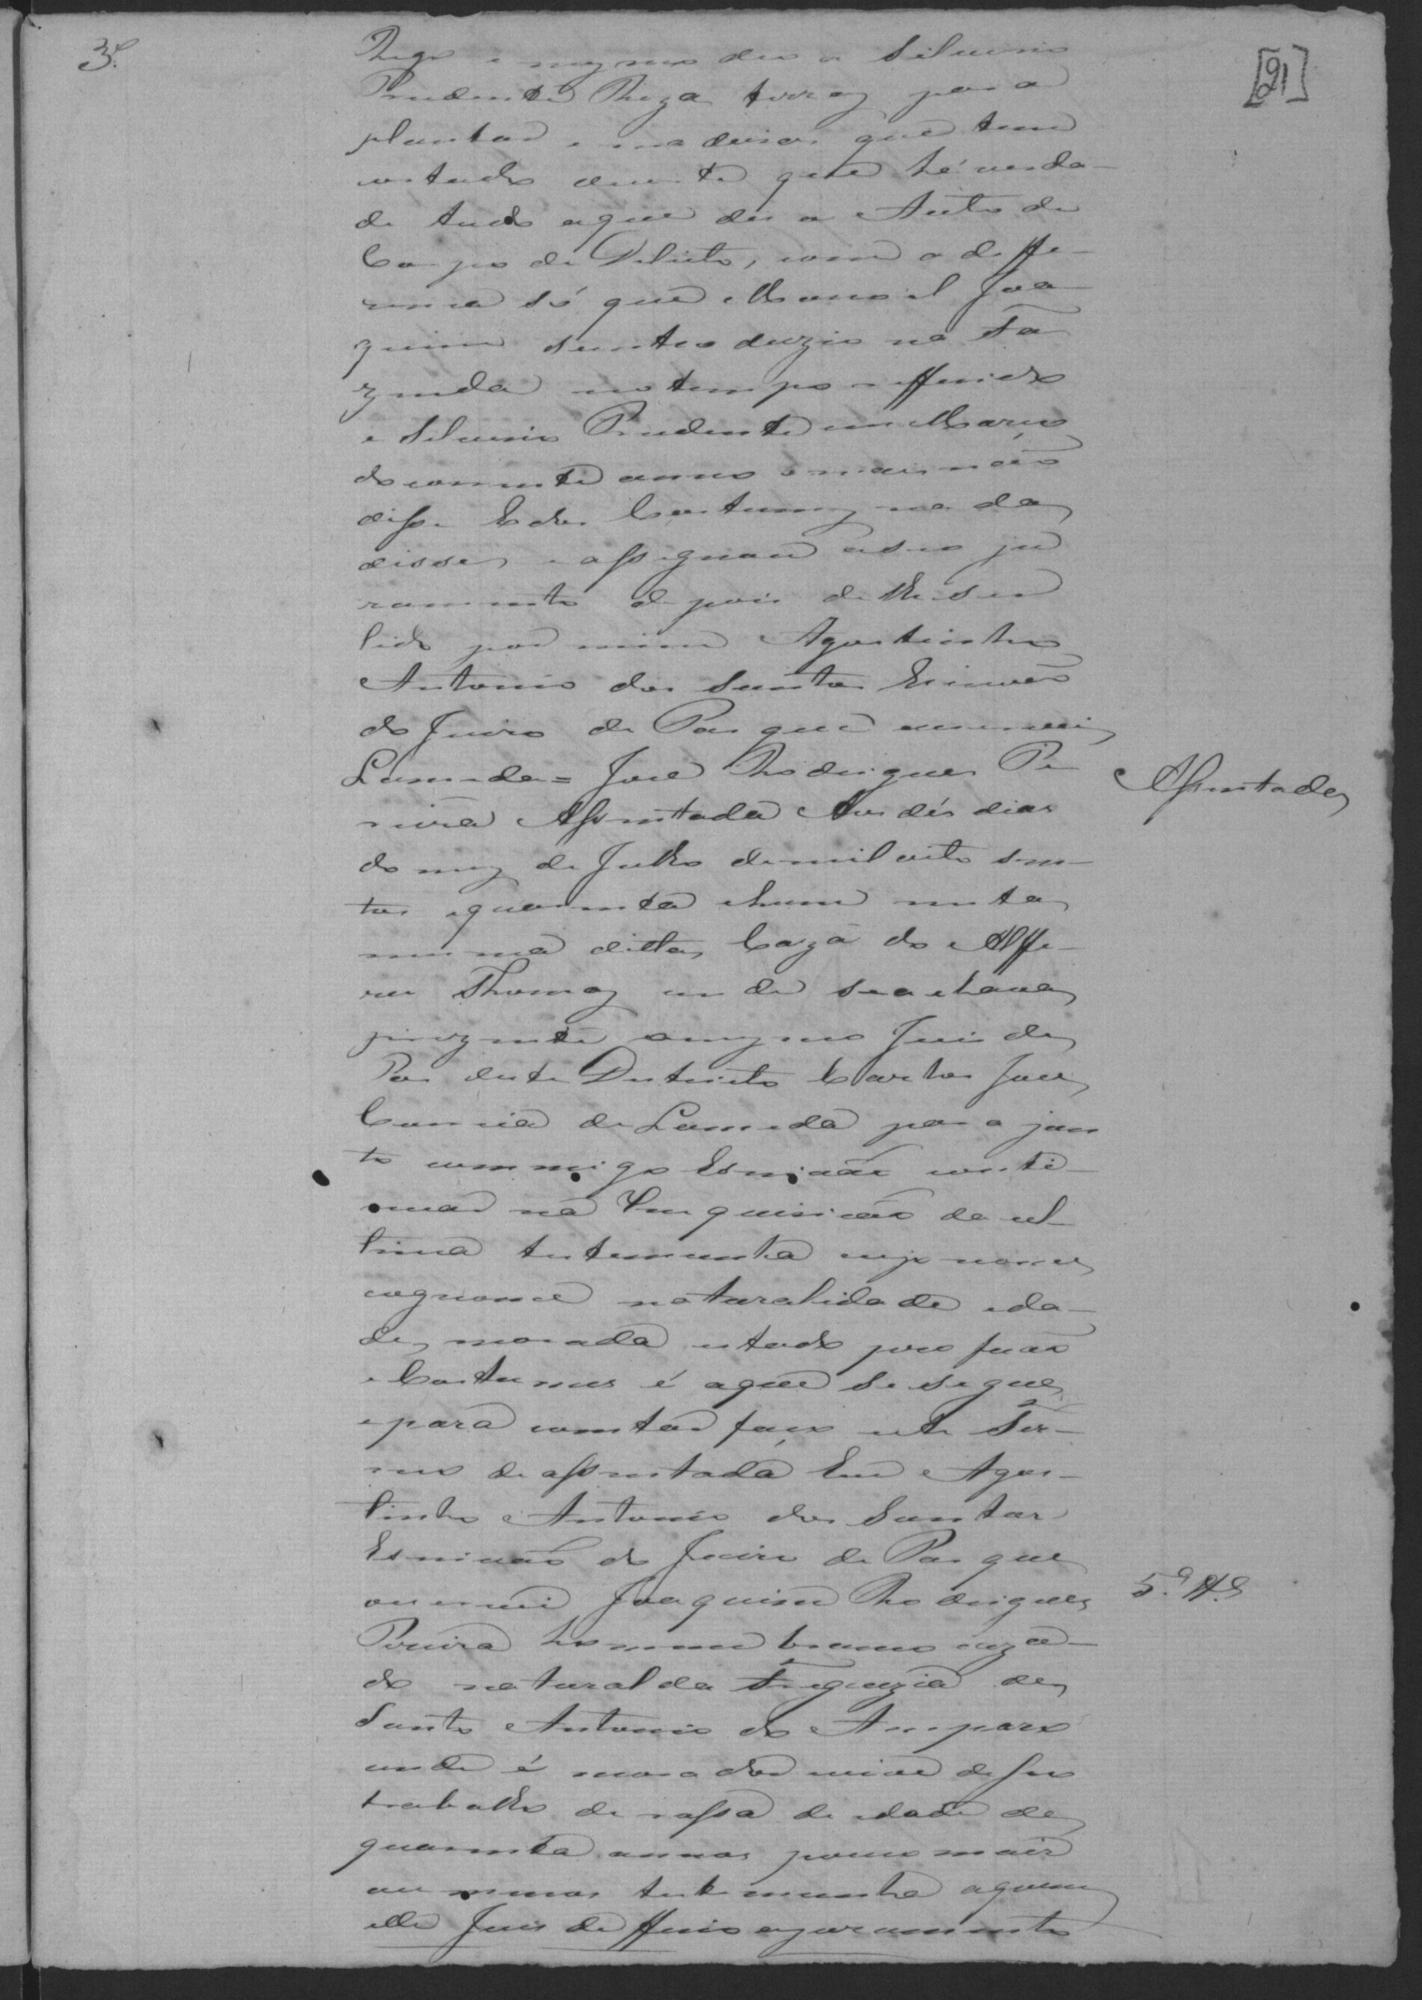 3.º
[21]
Rego e mesmo deu a Silverio
Prudente Reza terras para
plantar e madeiras que tem
cortado durante que hé verda-
de tudo aque deu a Auto de
Corpo de Delicto, com a diffe-
rença só que Manoel Joa-
quim seintroduzio na Fa-
zenda no tempo refferido
e Silverio Prudente em Março
do corrente anno e mais não
disse E dos Costumes nada
disse e assignou aseo ju
ramento depois delhe ser
lido por mim Agostinho
Antonio dos Santos Escrivão
do Juizo de Pas que escrevi
Lameda = José Rodrigues Pe
reira Assentada Aos dés dias
do mez de Julho de mil oito cen-
tos e quarenta ehum nesta
mesma ditta Caza do Alffe-
res Thomaz onde seachava
prezente omesmo Juis de
Pas deste Destricto Carlos José
Correia de Lameda para jun
to commigo Escrivão conti-
nuar na Inquirição da ul-
tima testemunha cujo nome
cognome naturalidade ida-
de morada estado proficão
e Costumes é aque se segue
epara constar faço este Ter-
mo de assentada Eu Agos-
tinho Antonio dos Santos
Escrivão do Juizo de Pas que
oescrevi Joaquim Rodrigues
Pereira homem branco caza-
do natural da Freguezia de
Santo Antonio do Amparo
onde é morador vive de seo
trabalho de rossa de idade de
quarenta annos pouco mais
ou menos testemunha aquem
elle Juis defferio ojuramento
Assentada
5.ª Tª